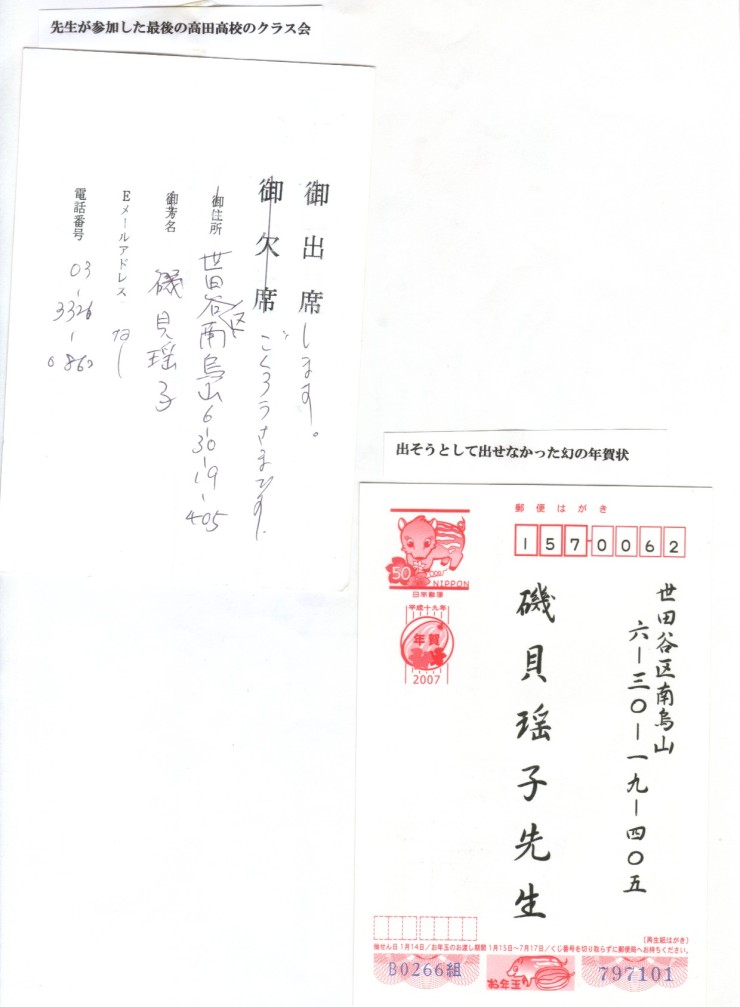 先生が参加した最後の高田高校のクラス会
御出席します。
御欠席 ごくろうさまです.
御住所 世田谷区南烏山6-30-19-405
御芳名 磯貝瑶子
Eメールアドレス なし
電話番号 03-3326-0860
出そうとして出せなかった幻の年賀状
郵便はがき
1570062
50
NIPPON
日本郵便
平成十九年
年賀
2007
世田谷区南烏山
六-三〇-一九-四〇五
磯貝瑶子先生
〔再生紙はがき〕
抽せん日1月14日/お年玉のお渡し期間1月15日~7月17日/くじ番号を切り取らずに郵便局へお持ちください。
B0266組
お年玉
797101